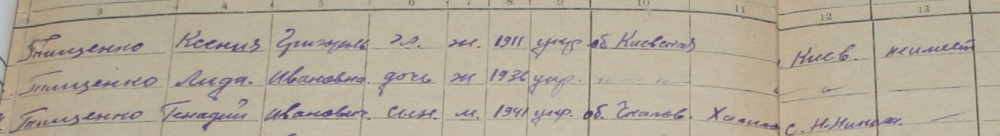 3 4 5 6 7 8 9 10 11 12 13
Тищенко Ксения Григорьев гл. ж. 1911 укр. об. Киевская Киев. неимеет
Тищенко Лида. Ивановна. дочь ж 1936 укр. " " "
Тищенко Генадий Иванович. сын. м. 1941 укр. об. Чкалов. с. Н.